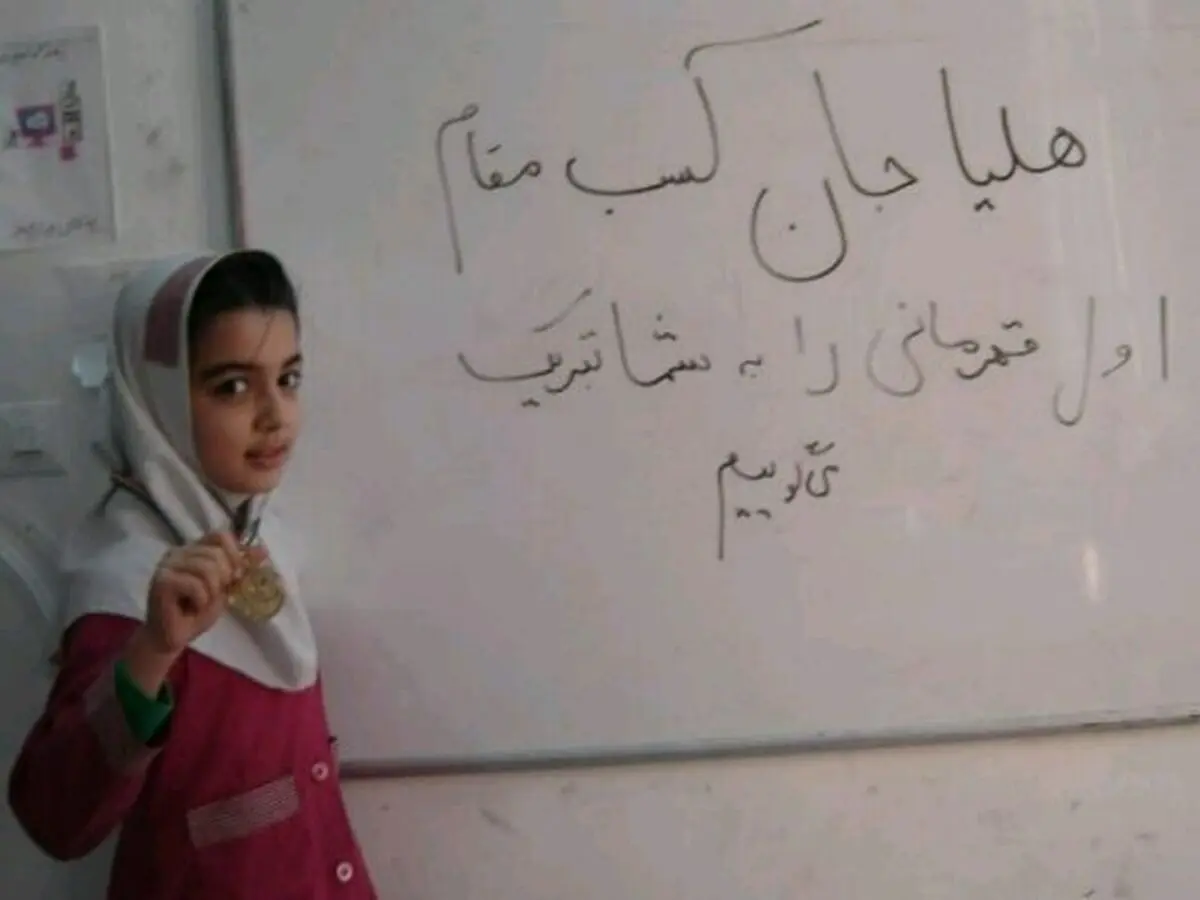 هلیا جان کسب مقام
اول قهرمانی را به شما تبریک
می گوییم